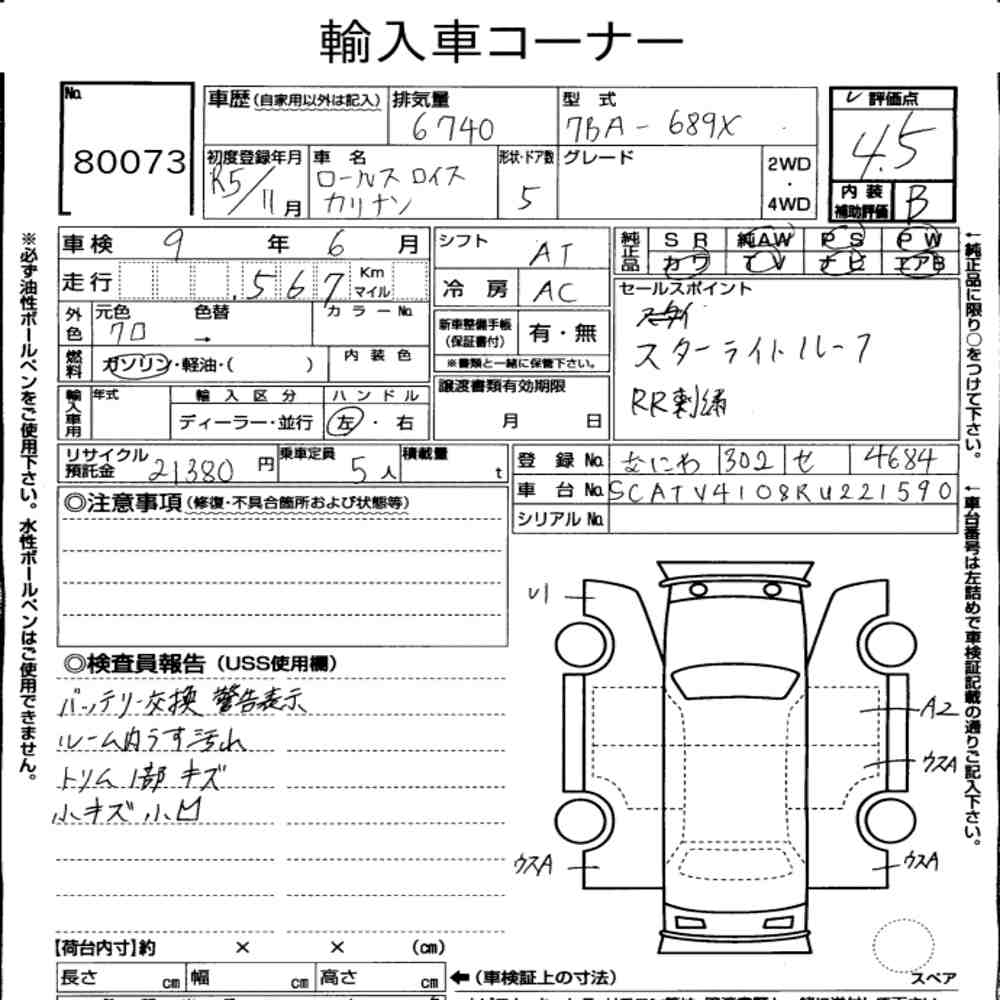 輸入車コーナー
No. 80073
車歴(自家用以外は記入) 排気量 6740 型式 7BA-689X
評価点 4.5
初度登録年月 R5/11月 車名 ロールスロイス カリナン 形状・ドア数 5 グレード 2WD・4WD
内装補助評価 B
車検 9年 6月 シフト AT 純正品 SR 純AW PS PW
カワ TV ナビ エアB
走行 567 Km マイル 冷房 AC セールスポイント
外色 元色 クロ 色替 → カラーNo.
新車整備手帳(保証書付) 有・無
※書類と一緒に保管下さい。
スターライトルーフ
RR刺繍
燃料 ガソリン・軽油・( ) 内装色
譲渡書類有効期限 月 日
輸入車用 年式 輸入区分 ディーラー・並行 ハンドル 左・右
リサイクル預託金 21380円 乗車定員 5人 積載量 t
登録No. なにわ 302 せ 4684
車台No. SCATV4108RU221590
シリアルNo.
◎注意事項(修復・不具合箇所および状態等)
◎検査員報告(USS使用欄)
バッテリー交換 警告表示
ルーム内うす汚れ
トリム1部キズ
小キズ小凹
A2
ウスA
ウスA
ウスA
スペア
【荷台内寸】約 × × (cm)
長さ cm 幅 cm 高さ cm ←(車検証上の寸法)
※必ず油性ボールペンをご使用下さい。水性ボールペンはご使用できません。
←純正品に限り○をつけて下さい。
←車台番号は左詰めで車検証記載の通りご記入下さい。